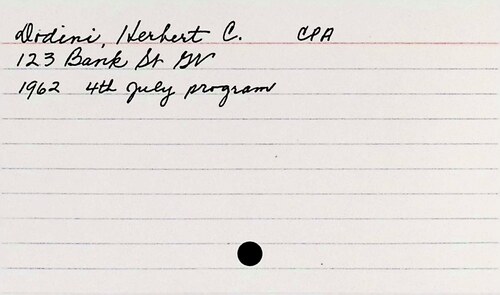 Dodini, Herbert C. CPA
123 Bank St GV
1962 4th July program